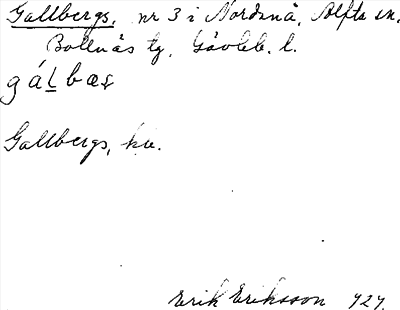 Gallbergs, nr 3 i Nordsnå, Alfta sn.
Bollnäs tg, Gävleb. l.
gálbæs
Gallbergs, kv.
Erik Eriksson 1727.